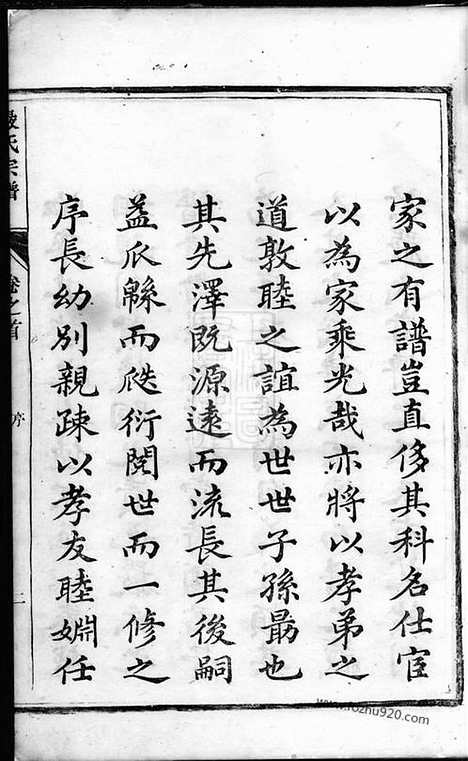 家之有譜豈直侈其科名仕宦
以為家乘光哉亦將以孝弟之
道敦睦之誼為世世子孫勗也
其先澤既源遠而流長其後嗣
益瓜緜而瓞衍閱世而一修之
序長幼別親疎以孝友睦婣任
氏宗譜
卷之首
序
二
www.rozhu920.com